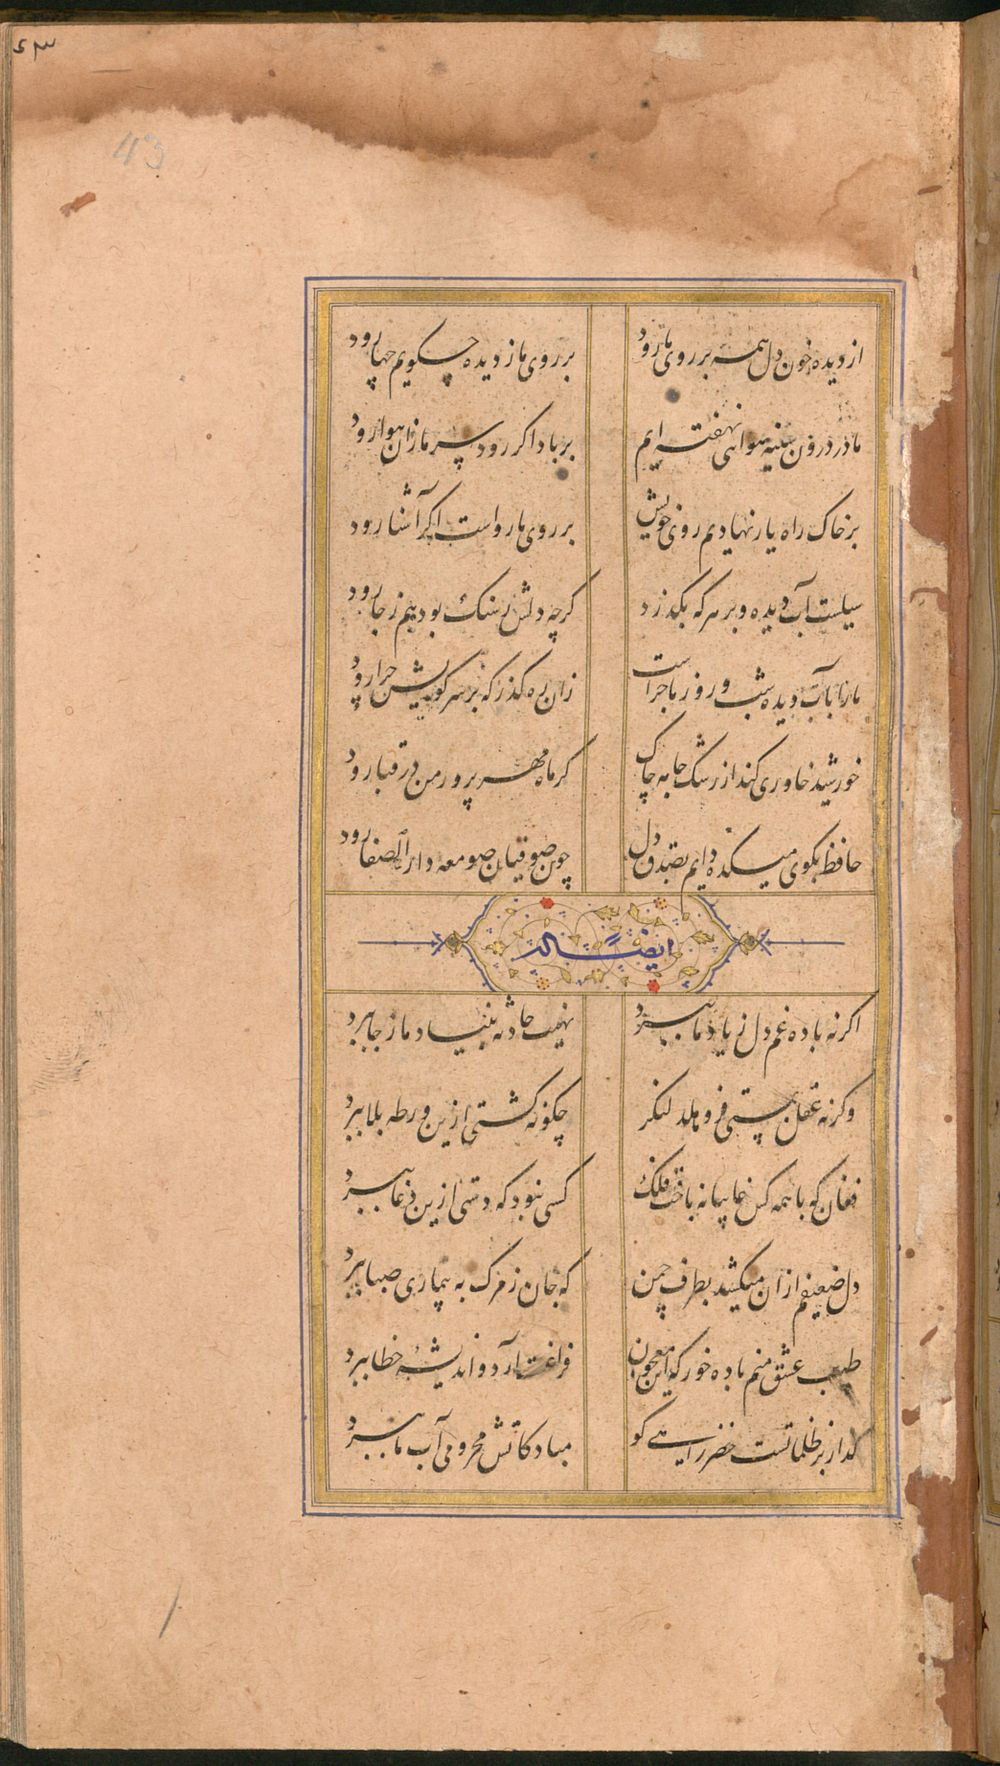 ۴۳
43
از دیده خون دل همه بر روی ما رود
بر روی ما ز دیده چگویم چها رود
ما در درون سینه هوائی نهفته ایم
بر باد اگر رود سر ما زان هوا رود
بر خاک راه یار نهادیم روی خویش
بر روی ما رواست اگر آشنا رود
سیلست آب دیده و بر هر که بگذرد
گرچه دلش ز سنگ بود هم ز جا رود
ما را بآب دیده شب و روز ماجراست
زان ره گذر که بر سر کویش چرا رود
خورشید خاوری کند از رشک جامه چاک
گر ماه مهر پرور من در قبا رود
حافظ بکوی میکده دایم بصدق دل
چون صوفیان صومعه دار الصفا رود
ایضا له
اگر نه باده غم دل ز یاد ما ببرد
نهیب حادثه بنیاد ما ز جا ببرد
وگر نه عقل بمستی فرو هلد لنگر
چگونه کشتی ازین ورطه بلا ببرد
فغان که با همه کس غایبانه باخت فلک
کسی نبود که دستی ازین دغا ببرد
دل ضعیفم از آن میکشد بطرف چمن
که جان ز مرگ به بیماری صبا ببرد
طبیب عشق منم باده خور که این معجون
فراغت آرد و اندیشه خطا ببرد
گذار بر ظلماتست خضر راهی کو
مباد کاتش محرومی آب ما ببرد